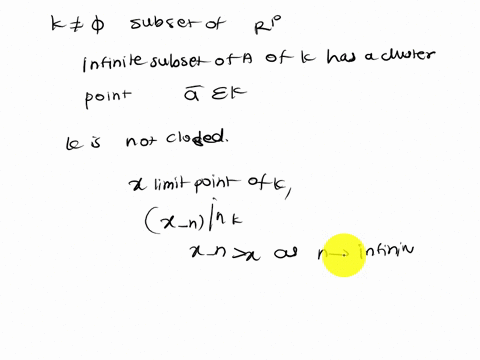 k ≠ ϕ subset of R^p
infinite subset of A of k has a cluster
point ā εk
k is not closed.
x limit point of k,
(x_n) in k
x_n > x as n → infinin